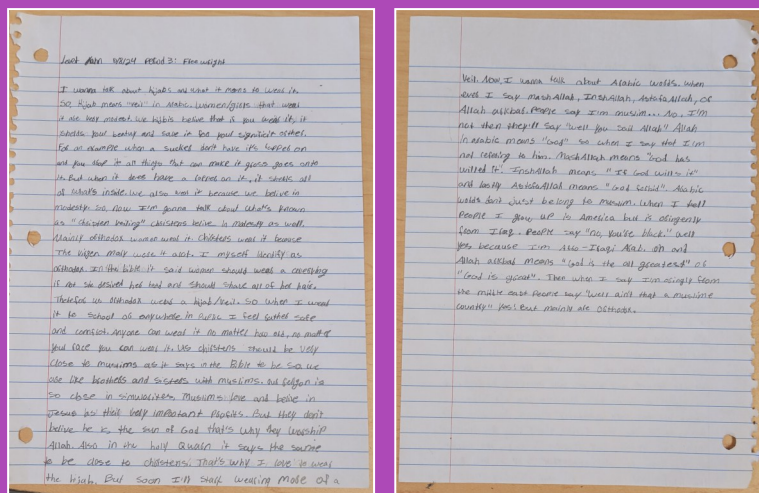 9/8/24 Period 3: Free wright
I wanna talk about hijabs and what it means to wear it.
So, Hijab means "Veil" in Arabic. Women/girls that wear
it are very modest. We hijbis belive that if you wear it, it
shields your beauty and save it for your significit other.
For an example when a sucker don't have it's rapper on
and you drop it all things that can make it gross goes onto
it. But when it does have a rapper on it, it shields all
of what's inside. We also wear it because we believe in
modesty. So, now I'm gonna talk about what's known
as "christen veiling" christens belive in modesty as well.
Mainly orthodox women wear it. Christens wear it because
The virgen mary wore it alot. I myself identify as
orthodox. In the bible it said women should wear a covering
if not she desired her head and should shave all of her hair.
Therefor us orthodox wear a hijab/veil. So when I wear
it to school or anywhere in public I feel safe
and comfort. Anyone can wear it no matter how old, no matter
your race you can wear it. Us christens should be very
close to muslims as it says in the Bible to be so we
are like brothers and sisters with muslims. Our religon is
so close in simularites. Muslims love and belive in
Jesus as their very important profits. But they don't
belive he is the son of God that's why they worship
Allah. Also in the holy Quran it says the same
to be close to christens. That's why I love to wear
the hijab. But soon I'll start wearing more of a
Veil. Now, I wanna talk about Arabic words. When
ever I say mashAllah, InshAllah, AstafaAllah, or
Allah akkbar. People say I'm muslim... No, I'm
not then they'll say "well you said Allah" Allah
in arabic means "God" so when I say that I'm
not refering to him. MashAllah means "God has
willed it". InshAllah means "If God wills it"
and lastly AstafaAllah means "God forbid". Arabic
words don't just belong to muslim. When I tell
people I grew up is America but is oringenly
from Iraq. People say "no, you're black." well
yes because I'm Afro-Iraqi Arab. oh and
Allah akkbar means "God is the all greatest" or
"God is great". Then when I say I'm oringly from
the middle east people say "well ain't that a muslime
country" Yes! But mainly are Orthodox.